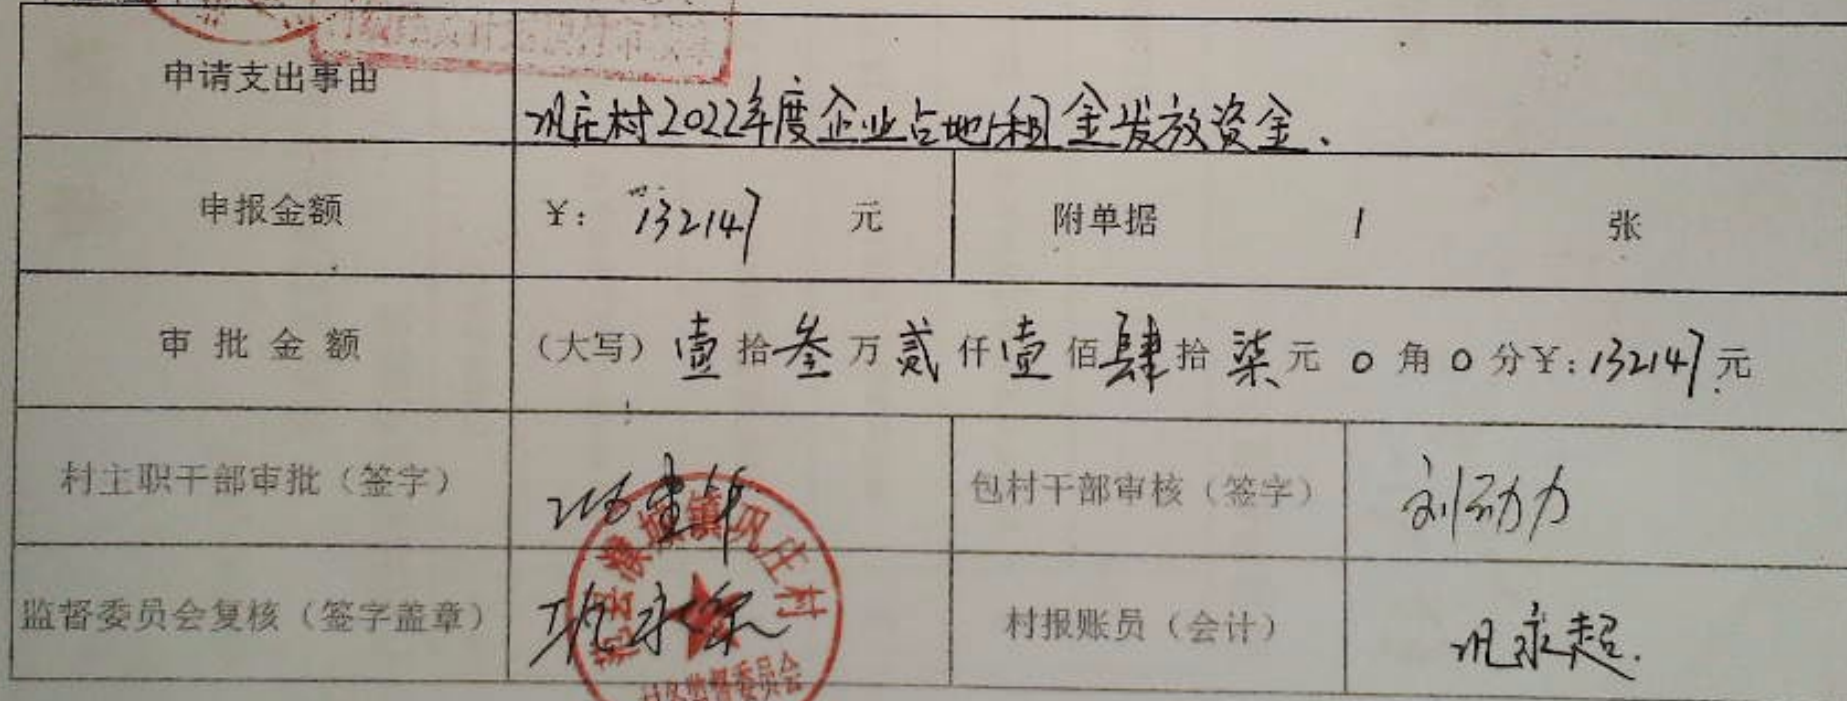 申请支出事由
巩庄村2022年度企业占地租金发放资金.
申报金额 ¥: 132147 元 附单据 1 张
审批金额 (大写) 壹拾叁万贰仟壹佰肆拾柒元0角0分¥:132147元
村主职干部审批(签字) 包村干部审核(签字) 刘劲力
镇巩庄村
监督委员会复核(签字盖章) 巩永 村报账员(会计) 巩永超.
村务监督委员会